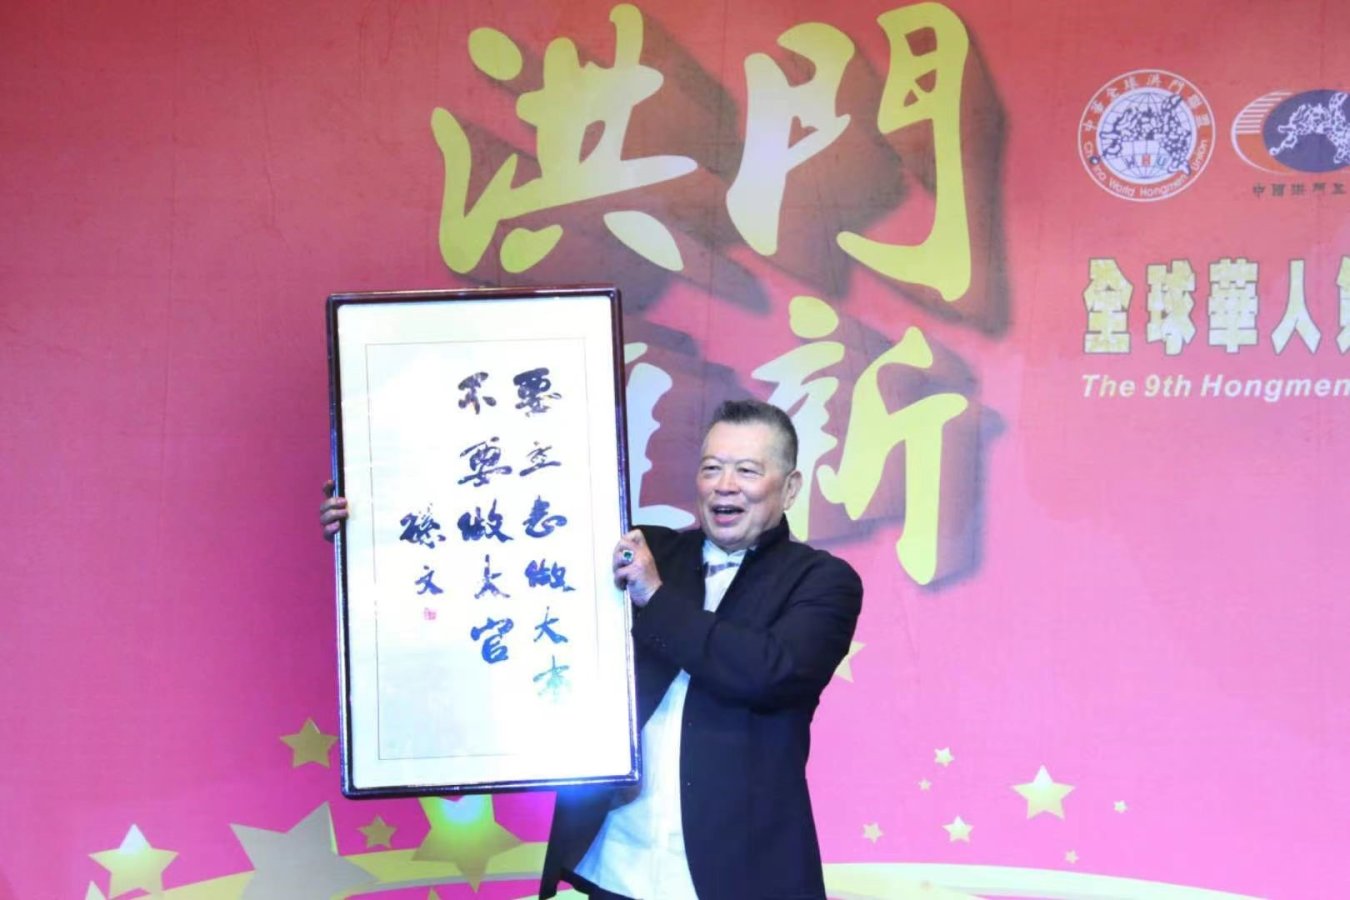 洪門
新
中華全球洪門聯盟
China World Hongmen Union
WHU
中國洪門
全球華人
The 9th Hongmen
要立志做大事
不要做大官
孫文